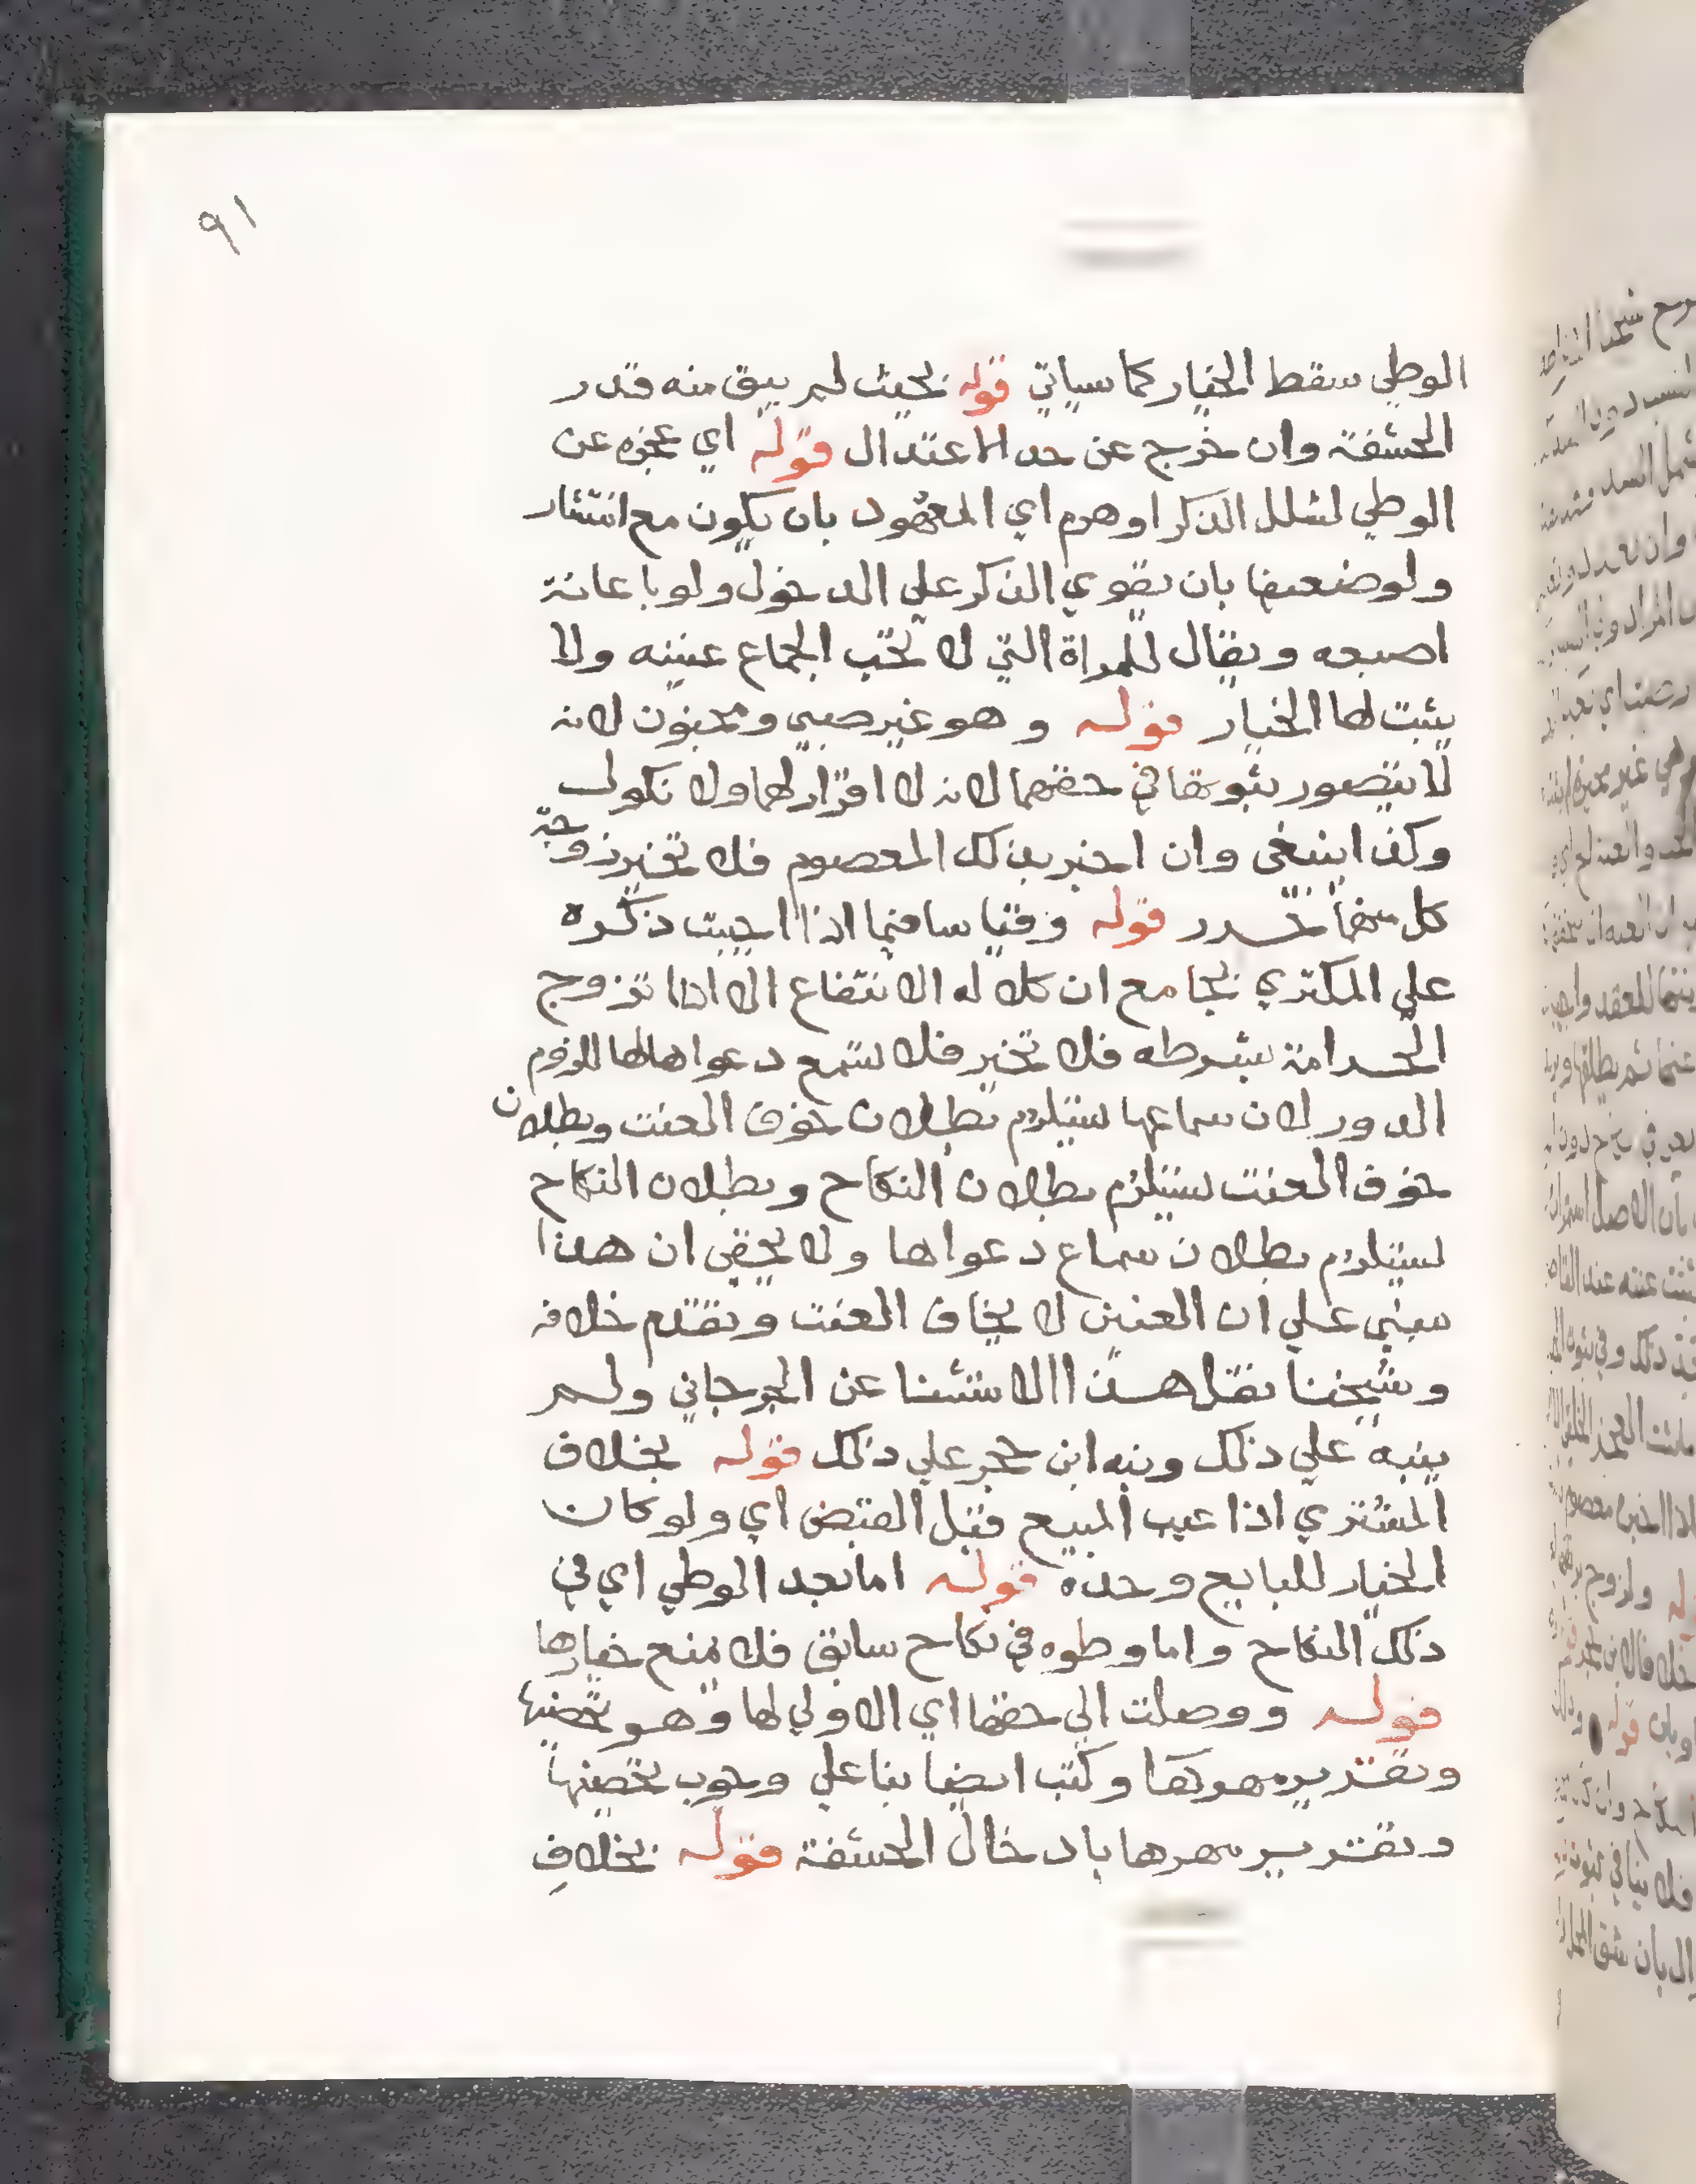 ٩١
الوطي سقط الخيار كما سياتي قوله بحيث لم يبق منه قدر
الحشفة وان خرج عن حد الاعتدال قوله اي عجزه عن
الوطي لشلل الذكر او هرم اي المعهود بان يكون مع انتشار
ولو ضعيفا بان يقوي الذكر علي الدخول ولو باعانة
اصبعه ويقال للمراة التي لا تحب الجماع عنينه ولا
يثبت لها الخيار قوله وهو غير صبي ومجنون لانه
لا يتصور ثبوتها في حقهما لانه لا اقرار لهما ولا نكول
وكذا ينبغي وان اخبر بذلك المعصوم فلا تخير زوجة
كل منهما قوله وقياسا فيما اذا جبت ذكره
علي المكتري بجامع ان كلا له الانتفاع الا اذا تزوج
الحر امة بشرطه فلا تخير فلا تسمع دعواها للزوم
الدور لان سماعها يستلزم بطلان خوف العنت وبطلان
خوف العنت يستلزم بطلان النكاح وبطلان النكاح
يستلزم بطلان سماع دعواها ولا يخفي ان هذا
مبني علي ان العنين لا يخاف العنت وتقدم خلافه
وشيخنا نقل هذا الاستثنا عن الجرجاني ولم
ينبه علي ذلك ونبه ابن حجر علي ذلك قوله بخلاف
المشتري اذا عيب المبيع قبل القبض اي ولو كان
الخيار للبايع وحده قوله اما بعد الوطي اي في
ذلك النكاح واما وطوه في نكاح سابق فلا يمنع خيارها
قوله ووصلت الي حقها اي الاولي لها وهو تحصينها
وتقدير مهرها وكتب ايضا بنا علي وجوب تحصينها
وتقدير مهرها بادخال الحشفة قوله بخلاف